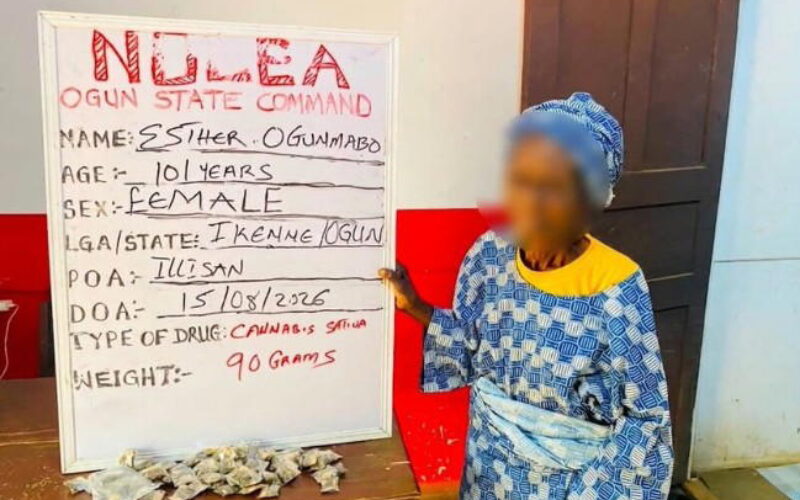 NDLEA
OGUN STATE COMMAND
NAME:- ESTHER. OGUNMABO
AGE:- 101 YEARS
SEX:- FEMALE
LGA/STATE:- IKENNE/OGUN
POA:- ILLISAN
DOA:- 15/08/2026
TYPE OF DRUG: CANNABIS SATIVA
WEIGHT:- 90 GRAMS